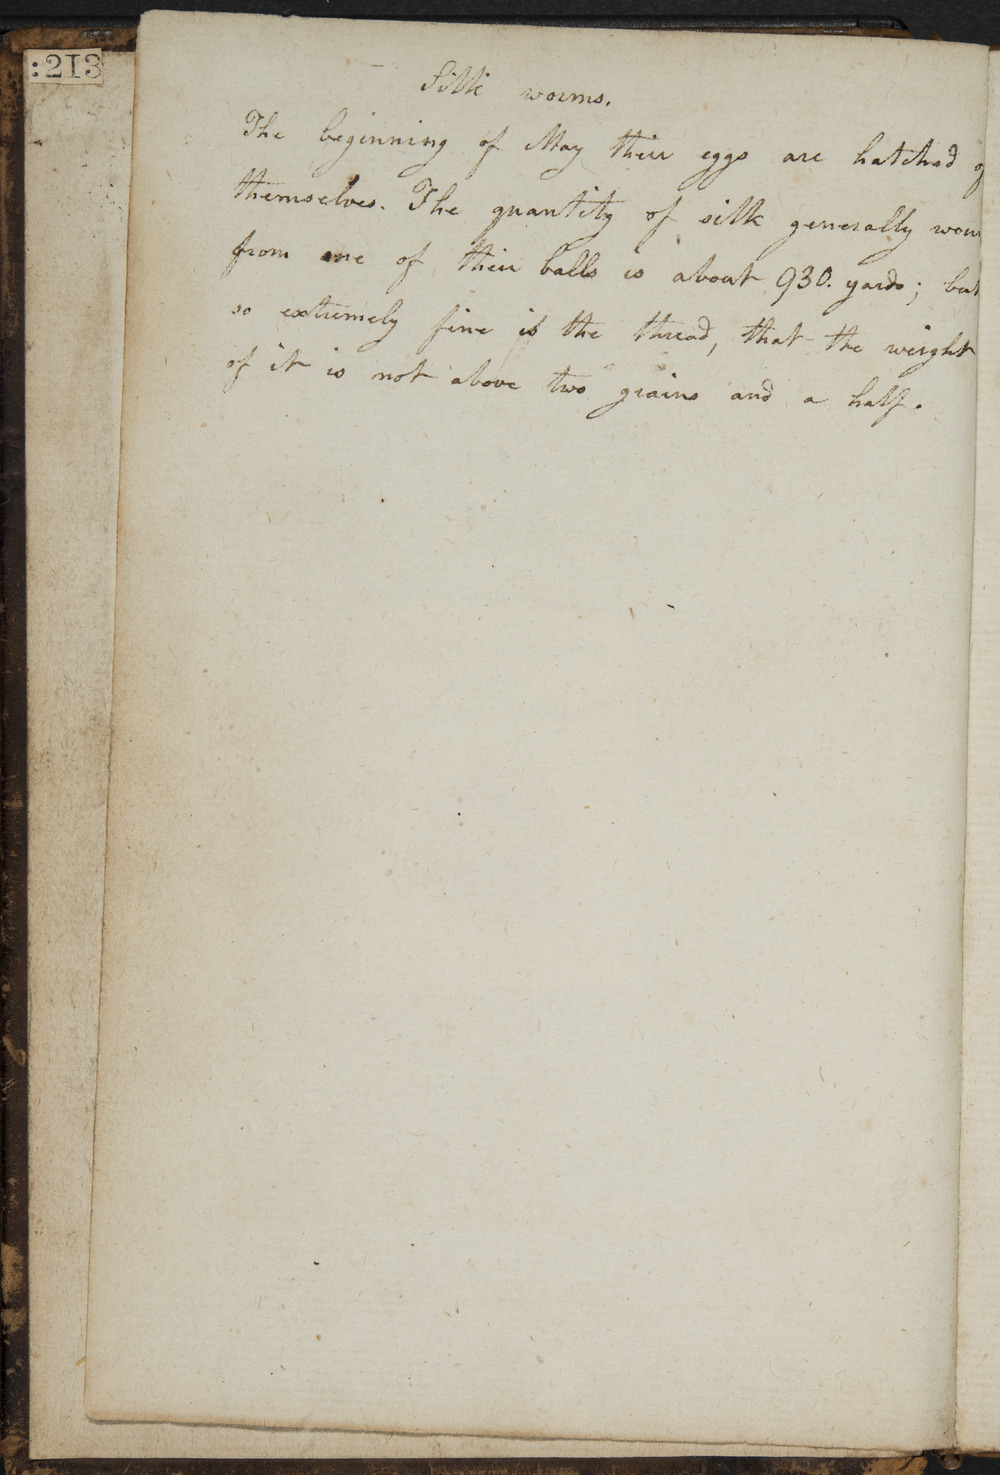 :213
Silk worms.
The beginning of May their eggs are hatched
themselves. The quantity of silk generally woun
from one of their balls is about 930. yards; but
so extremely fine is the thread, that the weight
of it is not above two grains and a half.